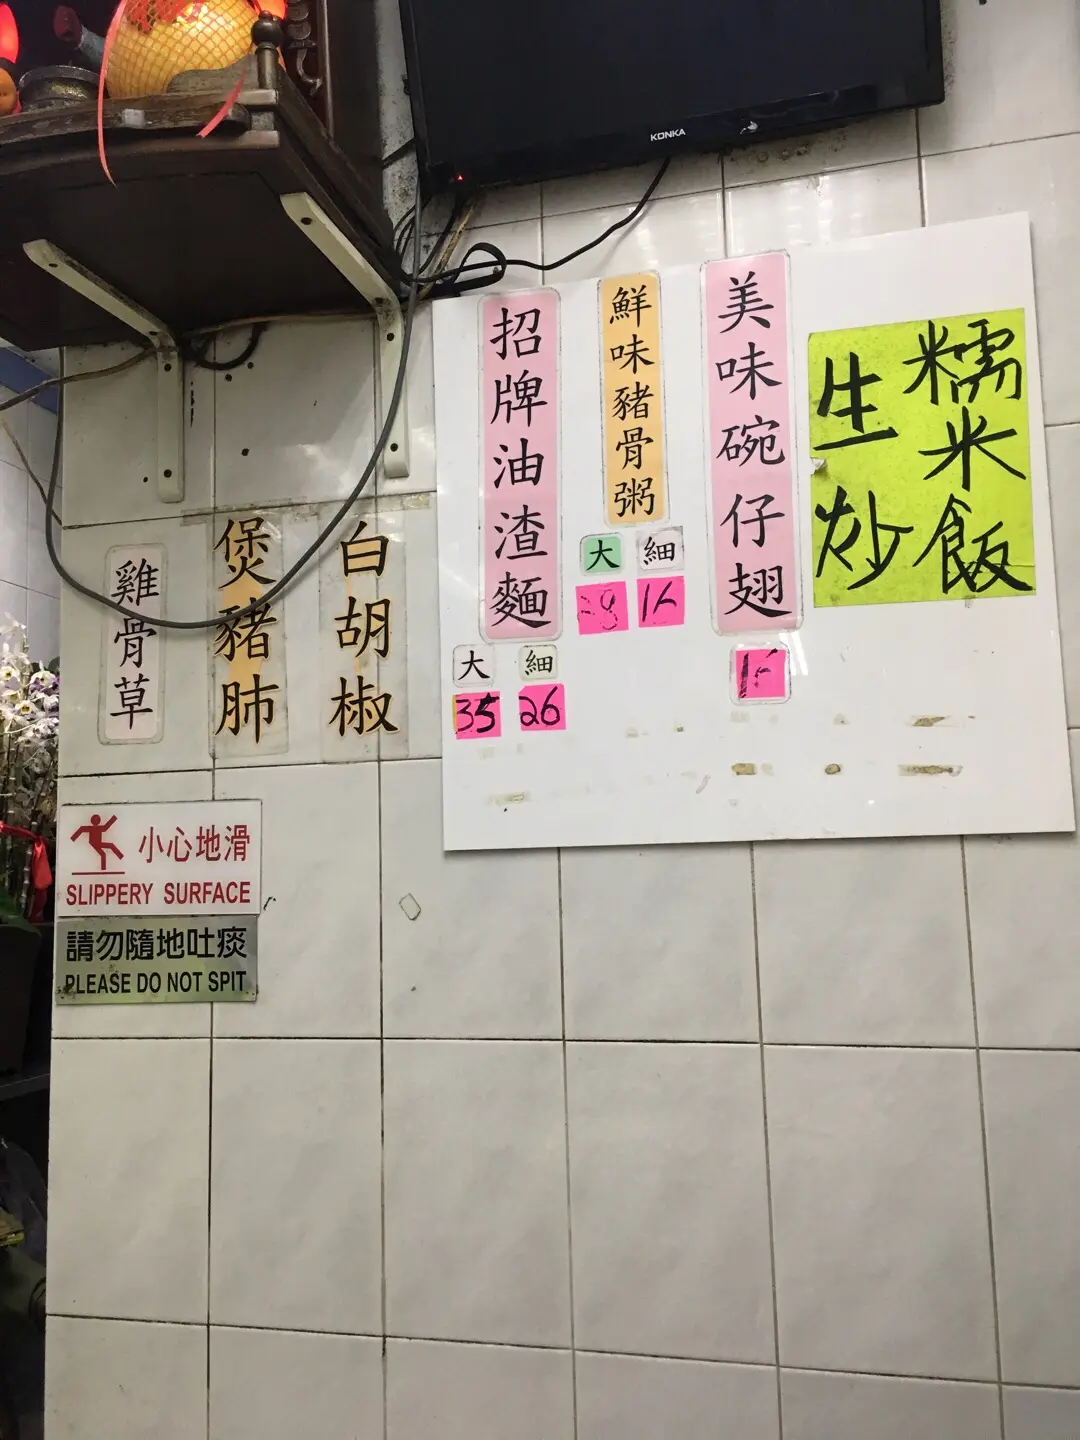 KONKA
招牌油渣麵
大
細
35
26
鮮味豬骨粥
大
細
16
美味碗仔翅
16
生炒
糯米飯
雞骨草
煲豬肺
白胡椒
小心地滑
SLIPPERY SURFACE
請勿隨地吐痰
PLEASE DO NOT SPIT